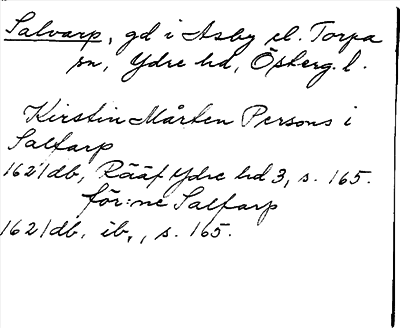 Salvarp, gd i Asby el. Torpa
sn, Ydre hd, Österg. l.
Kirstin Mårten Persons i
Salfarp
1621 db, Rääf Ydre hd 3, s. 165.
för:ne Salfarp
1621 db. ib., s. 165.